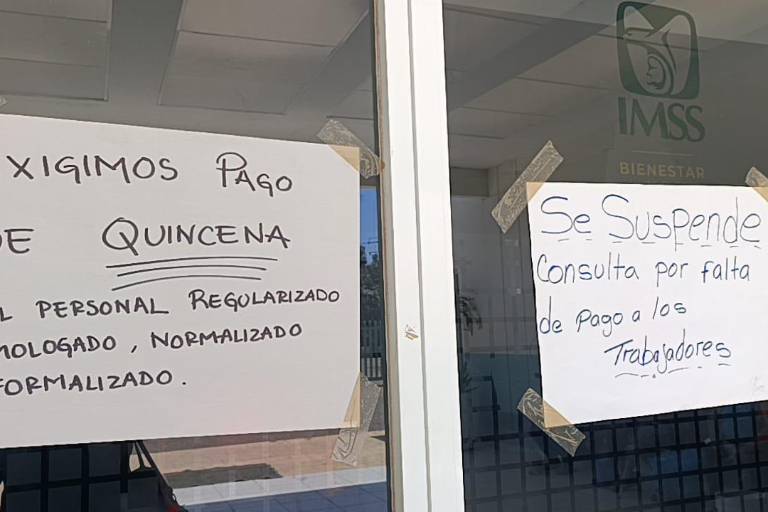 XIGIMOS PAGO
E QUINCENA
L PERSONAL REGULARIZADO
MOLOGADO, NORMALIZADO
FORMALIZADO.
IMSS
BIENESTAR
Se Suspende
Consulta por falta
de Pago a los
Trabajadores